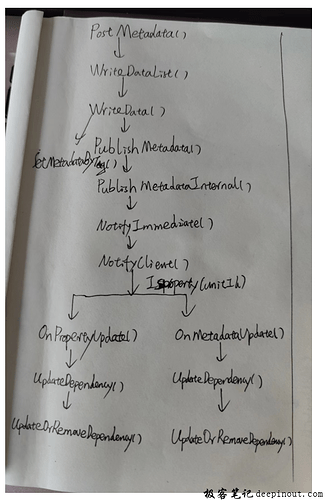 PostMetadata()
WriteDataList()
WriteData()
PublishMetadata()
PublishMetadataInternal()
NotifyImmediate()
NotifyClient()
OnPropertyUpdate()
OnMetadataUpdate()
UpdateDependency()
UpdateDependency()
UpdateOrRemoveDependency()
UpdateOrRemoveDependency()
极客笔记deepinout.com